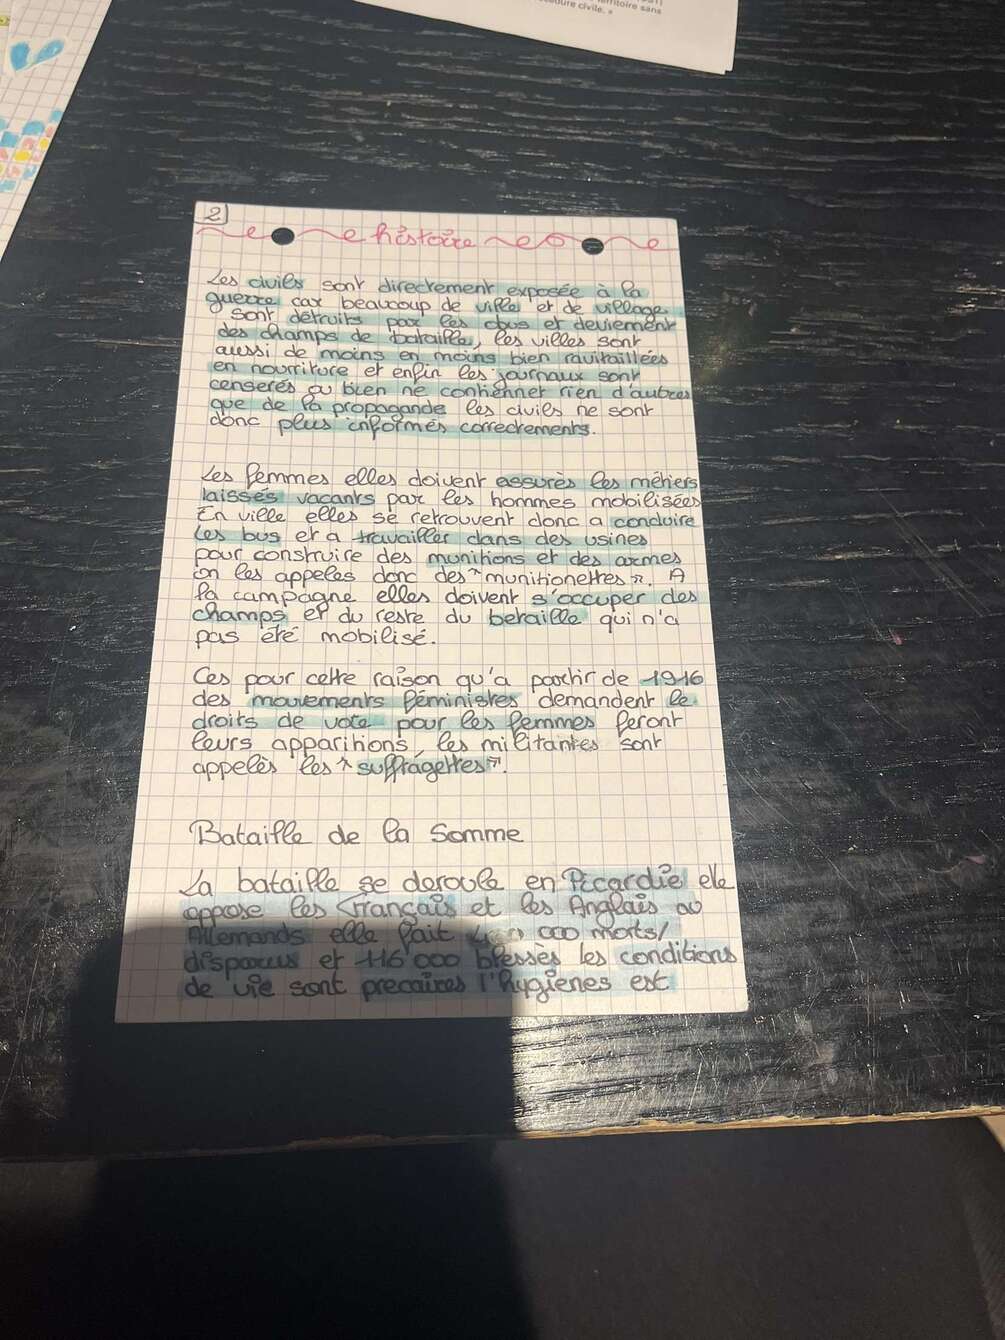 rritoire sans
cédure civile. »
2
histoire
Les civils sont directement exposée à la
guerre car beaucoup de ville et de village
sont détruits par les obus et deviement
des champs de bataille, les villes sont
aussi de moins en moins bien ravitaillées
en nourriture et enfin les journaux sont
censerés ou bien ne contiennet rien d'autres
que de la propagande les civils ne sont
donc plus informés correctements.
Les femmes elles doivent assurès les métiers
laissés vacants par les hommes mobilisées
En ville elles se retrouvent donc a conduire
les bus et a travailler dans des usines
pour construire des munitions et des armes
on les appeles donc des "munitionettes". A
la campagne elles doivent s'occuper des
champs et du reste du betaille qui n'a
pas été mobilisé.
Ces pour cette raison qu'a partir de 1916
des mouvements féministes demandent le
droits de vote pour les femmes feront
leurs apparitions, les militantes sont
appelès les "suffragettes".
Bataille de la Somme
La bataille se deroule en Picardie ele
oppose les français et les Anglais au
Allemands elle fait 000 morts/
disparus et 116 000 blessès les conditions
de vie sont precaires l'hygienes est